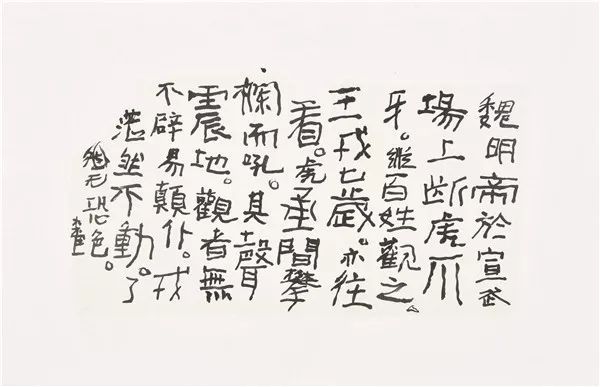 魏明帝於宣武
場上断虎爪
牙。縱百姓觀之。
王戎七歲。亦往
看。虎承間攀
欄而吼。其聲
震地。觀者無
不辟易顛仆。戎
湛然不動。了
无恐色。